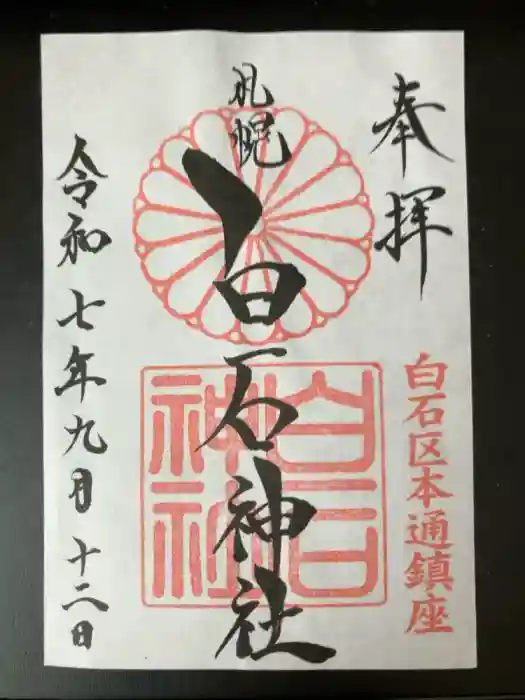 奉拝
白石区本通鎮座
札幌
白石神社
白石神社
令和七年九月十二日